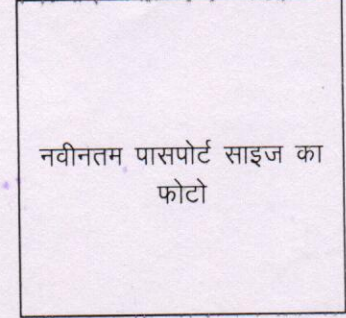 नवीनतम पासपोर्ट साइज का
फोटो